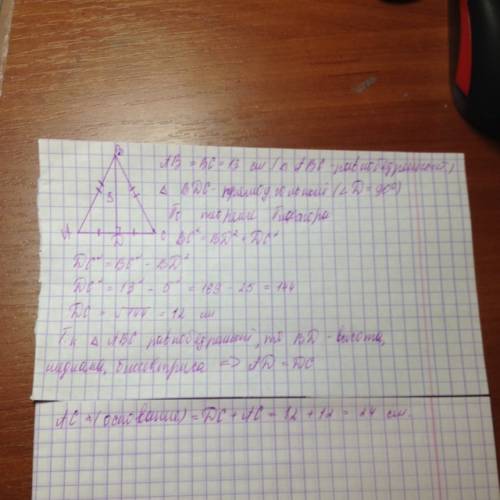 B
5
A
D
C
AB = BC = 13 см (△ ABC - равнобедренный)
△ BDC - прямоугольный (∠D = 90°)
По теореме Пифагора
BC² = BD² + DC²
DC² = BC² - BD²
DC² = 13² - 5² = 169 - 25 = 144
DC = √144 = 12 см
Т.к △ ABC равнобедренный, то BD - высота,
медиана, биссектриса => AD = DC
AC - (основание) = DC + AC = 12 + 12 = 24 см.